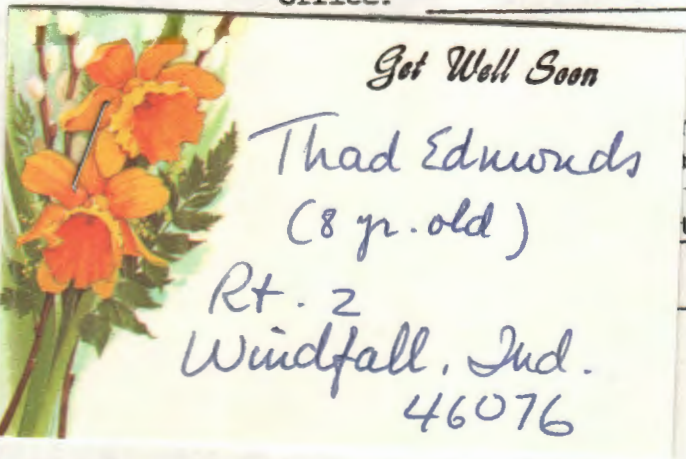 office.
Get Well Soon
Thad Edmonds
(8 yr. old)
Rt. 2
Windfall, Ind.
46076